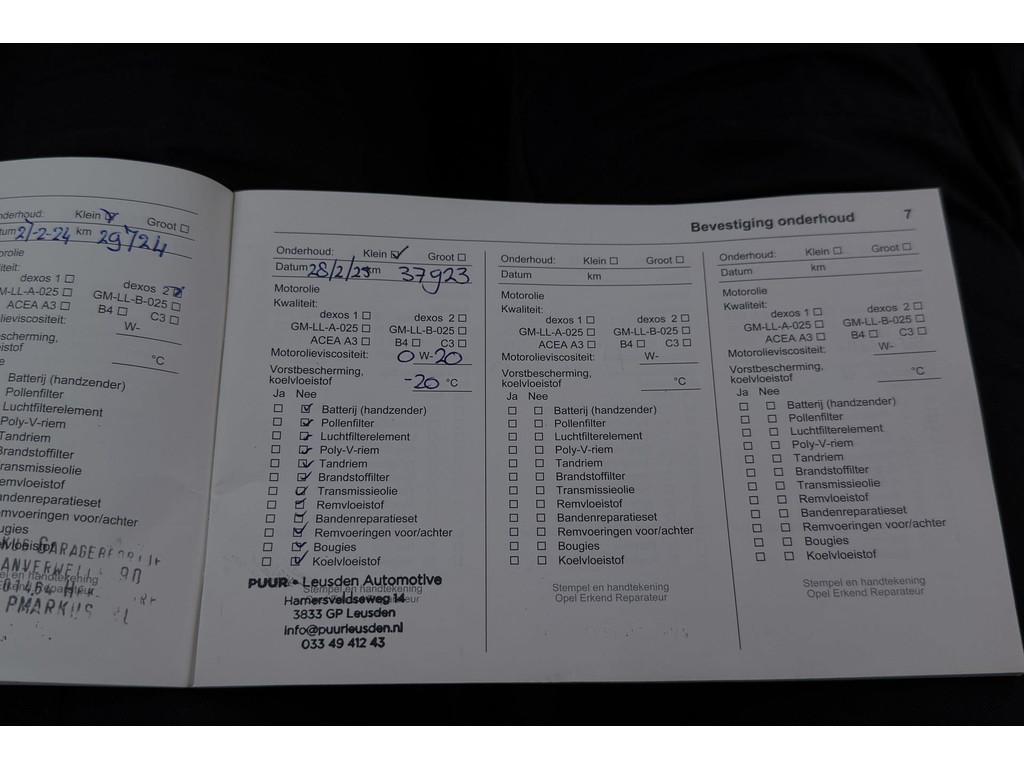 Bevestiging onderhoud 7
Onderhoud: Klein Groot
Datum 21-2-24 km 29724
dexos 1 dexos 2
GM-LL-B-025
ACEA A3 B4 C3
W-
°C
Batterij (handzender)
Pollenfilter
Luchtfilterelement
Poly-V-riem
Tandriem
Brandstoffilter
Remvoeringen voor/achter
Onderhoud: Klein Groot
Datum 28/2/25 km 37923
Motorolie
Kwaliteit:
dexos 1 dexos 2
GM-LL-A-025 GM-LL-B-025
ACEA A3 B4 C3
Motorolieviscositeit: 0 W- 20
Vorstbescherming,
koelvloeistof -20 °C
Ja Nee
Batterij (handzender)
Pollenfilter
Luchtfilterelement
Poly-V-riem
Tandriem
Brandstoffilter
Transmissieolie
Remvloeistof
Bandenreparatieset
Remvoeringen voor/achter
Bougies
Koelvloeistof
PUUR Leusden Automotive
Hamersveldseweg 14
3833 GP Leusden
info@puurleusden.nl
033 49 412 43
Onderhoud: Klein Groot
Datum km
Motorolie
Kwaliteit:
dexos 1 dexos 2
GM-LL-A-025 GM-LL-B-025
ACEA A3 B4 C3
Motorolieviscositeit: W-
Vorstbescherming,
koelvloeistof °C
Ja Nee
Batterij (handzender)
Pollenfilter
Luchtfilterelement
Poly-V-riem
Tandriem
Brandstoffilter
Transmissieolie
Remvloeistof
Bandenreparatieset
Remvoeringen voor/achter
Bougies
Koelvloeistof
Stempel en handtekening
Opel Erkend Reparateur
Onderhoud: Klein Groot
Datum km
Motorolie
Kwaliteit:
dexos 1 dexos 2
GM-LL-A-025 GM-LL-B-025
ACEA A3 B4 C3
Motorolieviscositeit: W-
Vorstbescherming,
koelvloeistof °C
Ja Nee
Batterij (handzender)
Pollenfilter
Luchtfilterelement
Poly-V-riem
Tandriem
Brandstoffilter
Transmissieolie
Remvloeistof
Bandenreparatieset
Remvoeringen voor/achter
Bougies
Koelvloeistof
Stempel en handtekening
Opel Erkend Reparateur